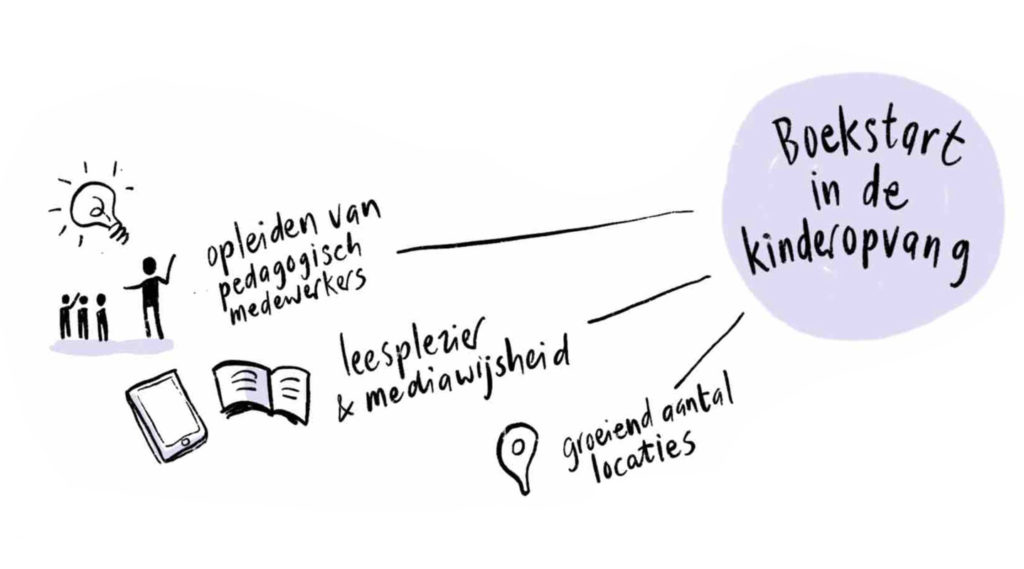 Boekstart
in de
kinderopvang
opleiden van
pedagogisch
medewerkers
leesplezier
& mediawijsheid
groeiend aantal
locaties